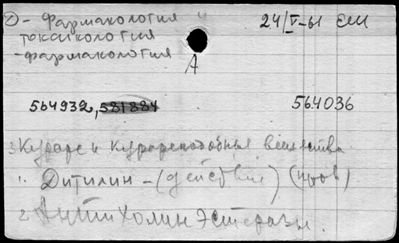 ② - фармакология и 24/V-61
токсикология
- фармакология
А
564932, 581884 564036
3 Кураре и курареподобные вещества
1. Дитилин - (действие)
2. Антихолинэстеразы.